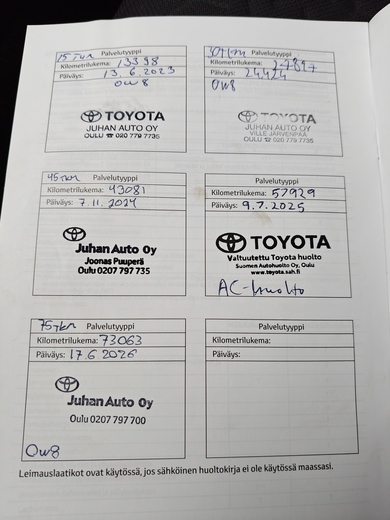 15 Tkm Palvelutyyppi
Kilometrilukema: 13398
Päiväys: 13.6.2023
0W8
TOYOTA
JUHAN AUTO OY
OULU ☎ 020 779 7735
30 Tkm Palvelutyyppi
Kilometrilukema: 27817
Päiväys: 24424
0W8
TOYOTA
JUHAN AUTO OY
VILLE JÄRVENPÄÄ
OULU ☎ 020 779 7735
45 Tkm Palvelutyyppi
Kilometrilukema: 43081
Päiväys: 7.11.2024
Juhan Auto Oy
Joonas Puuperä
Oulu 0207 797 735
Palvelutyyppi
Kilometrilukema: 57929
Päiväys: 9.7.2025
TOYOTA
Valtuutettu Toyota huolto
Suomen Autohuolto Oy, Oulu
www.toyota.sah.fi
AC-huolto
75 Tkm Palvelutyyppi
Kilometrilukema: 73063
Päiväys: 17.6.2026
Juhan Auto Oy
Oulu 0207 797 700
0W8
Palvelutyyppi
Kilometrilukema:
Päiväys:
Leimauslaatikot ovat käytössä, jos sähköinen huoltokirja ei ole käytössä maassasi.